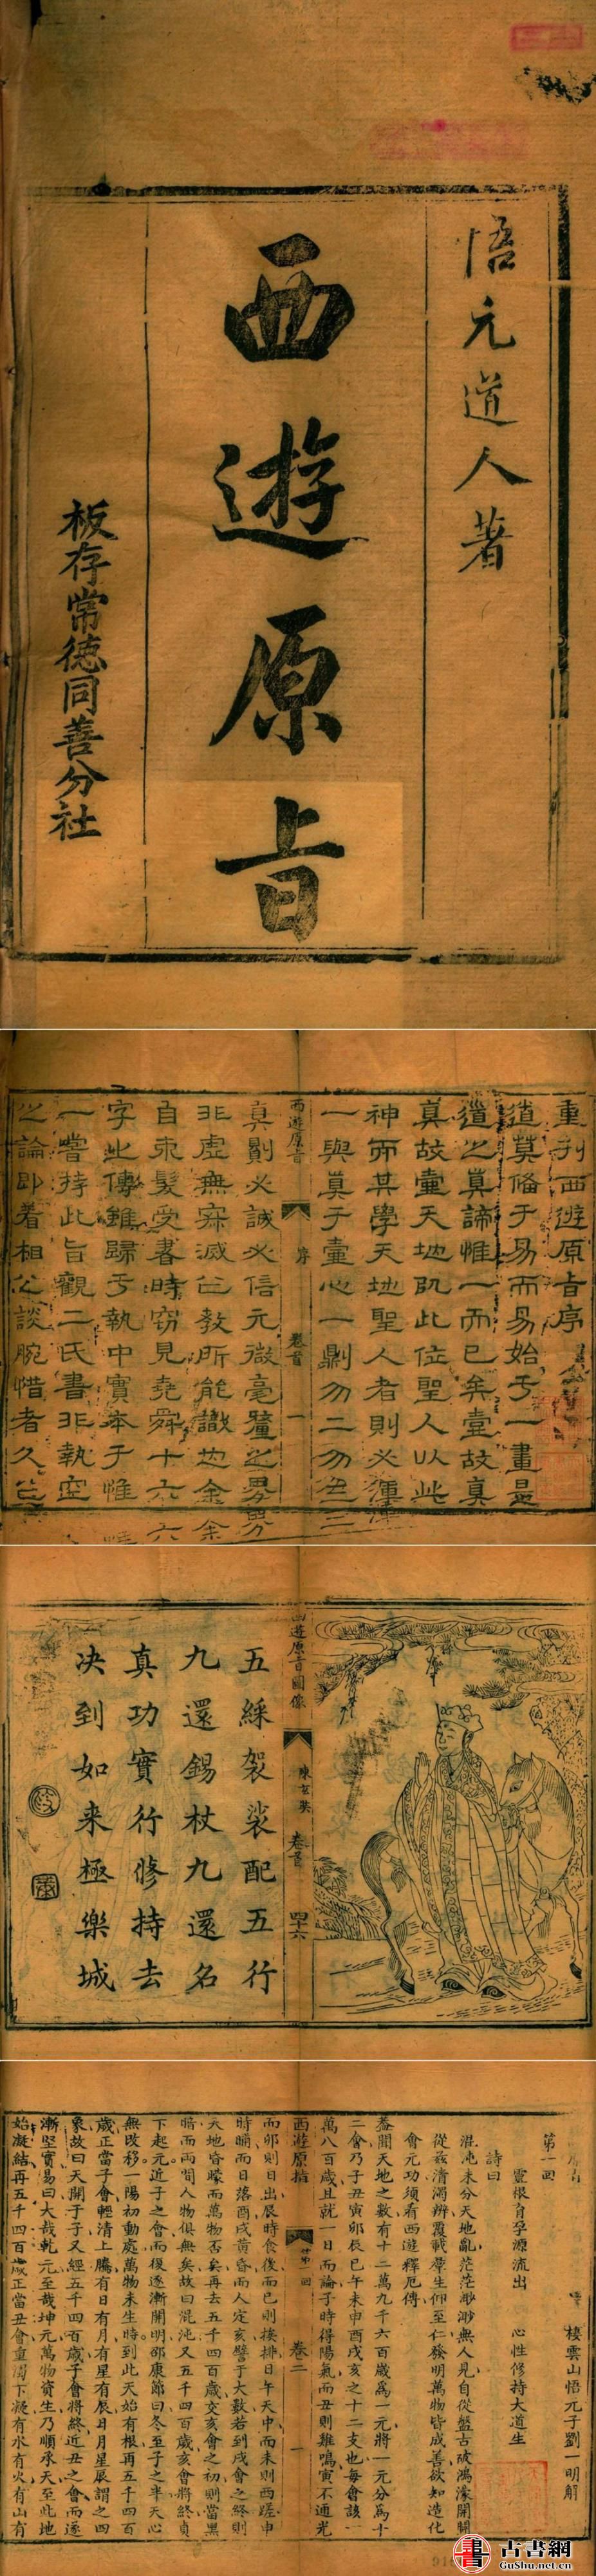 悟元道人著
西遊原旨
板存常德同善分社
重刊西遊原旨序
道莫備于易而易始于一畫是
道之真諦惟一而已矣壹故真
真故壹天地既此位聖人以此
神而其學天地聖人者則必
一與真于壹心一劑勿二勿
西遊原旨
序
卷首
一
真劑必誠必信元微毫釐之界
非虛無寂滅之教所能識也余
自束髮受書時竊見堯舜十六
字之傳雖歸于執中實本于惟
一嘗持此旨觀二氏書非執空
之論即着相之談腕惜者久之
西遊原旨圖像
陳玄奘
卷首
四十六
五綵袈裟配五行
九還錫杖九還名
真功實行修持去
决到如来極樂城
第一回
棲雲山悟元子劉一明解
靈根育孕源流出
心性修持大道生
詩曰
混沌未分天地亂茫茫渺渺無人見自從盤古破鴻濛開闢
從兹清濁辨覆載羣生仰至仁發明萬物皆成善欲知造化
會元功須看西遊釋厄傳
蓋聞天地之數有十二萬九千六百歲爲一元將一元分爲十
二會乃子丑寅卯辰巳午未申酉戌亥之十二支也每會該一
萬八百歲且就一日而論子時得陽氣而丑則雞鳴寅不通光
西遊原旨
第一回
卷二
一
而卯則日出辰時食後而巳則挨排日午天中而未則西蹉申
時晡而日落酉戌黄昏而人定亥譬于大數若到戌會之終則
天地昏曚而萬物否矣再去五千四百歲交亥會之初則當黑
暗而兩間人物俱無矣故曰混沌又五千四百歲亥會將終貞
下起元近子之會而復逐漸開明邵康節曰冬至子之半天心
無改移一陽初動處萬物未生時到此天始有根再五千四百
歲正當子會輕清上騰有日有月有星有辰日月星辰謂之四
象故曰天開于子又經五千四百歲子會將終近丑之會而逐
漸堅實易曰大哉乾元至哉坤元萬物資生乃順承天至此地
始凝結再五千四百歲正當丑會重濁下凝有水有火有山有
古書網
GuShu.net.cn